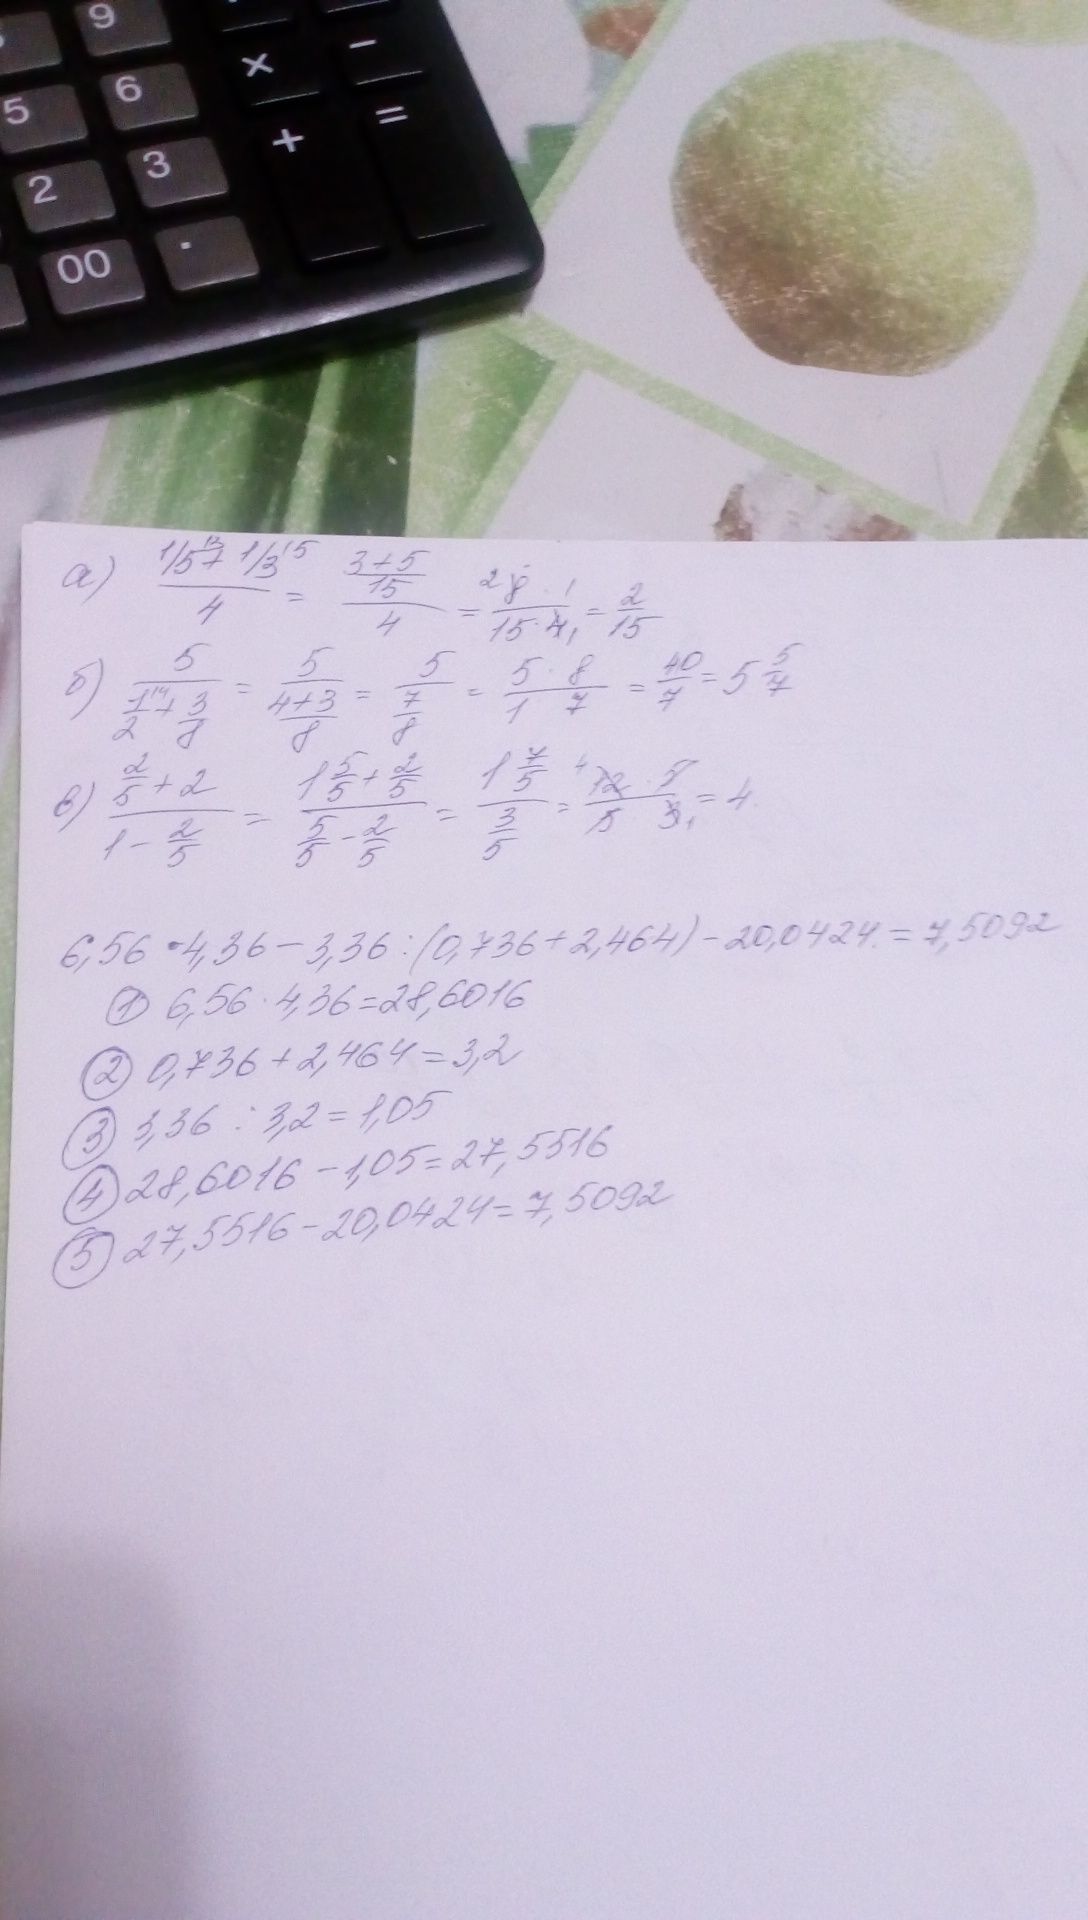 9
5 6 × −
2 3 + =
00 .
а) (1/5^3 + 1/3^5)/4 = ((3+5)/15)/4 = (2 8 · 1)/(15 · 4 1) = 2/15
б) 5/(1/2^4 + 3/8) = 5/((4+3)/8) = 5/(7/8) = (5 · 8)/(1 7) = 40/7 = 5 5/7
в) (2/5 + 2)/(1 − 2/5) = (1 5/5 + 2/5)/(5/5 − 2/5) = (1 7/5)/(3/5) = (4 12 · 5)/(5 · 3 1) = 4.
6,56 · 4,36 − 3,36 : (0,736 + 2,464) − 20,0424 = 7,5092
① 6,56 · 4,36 = 28,6016
② 0,736 + 2,464 = 3,2
③ 3,36 : 3,2 = 1,05
④ 28,6016 − 1,05 = 27,5516
⑤ 27,5516 − 20,0424 = 7,5092